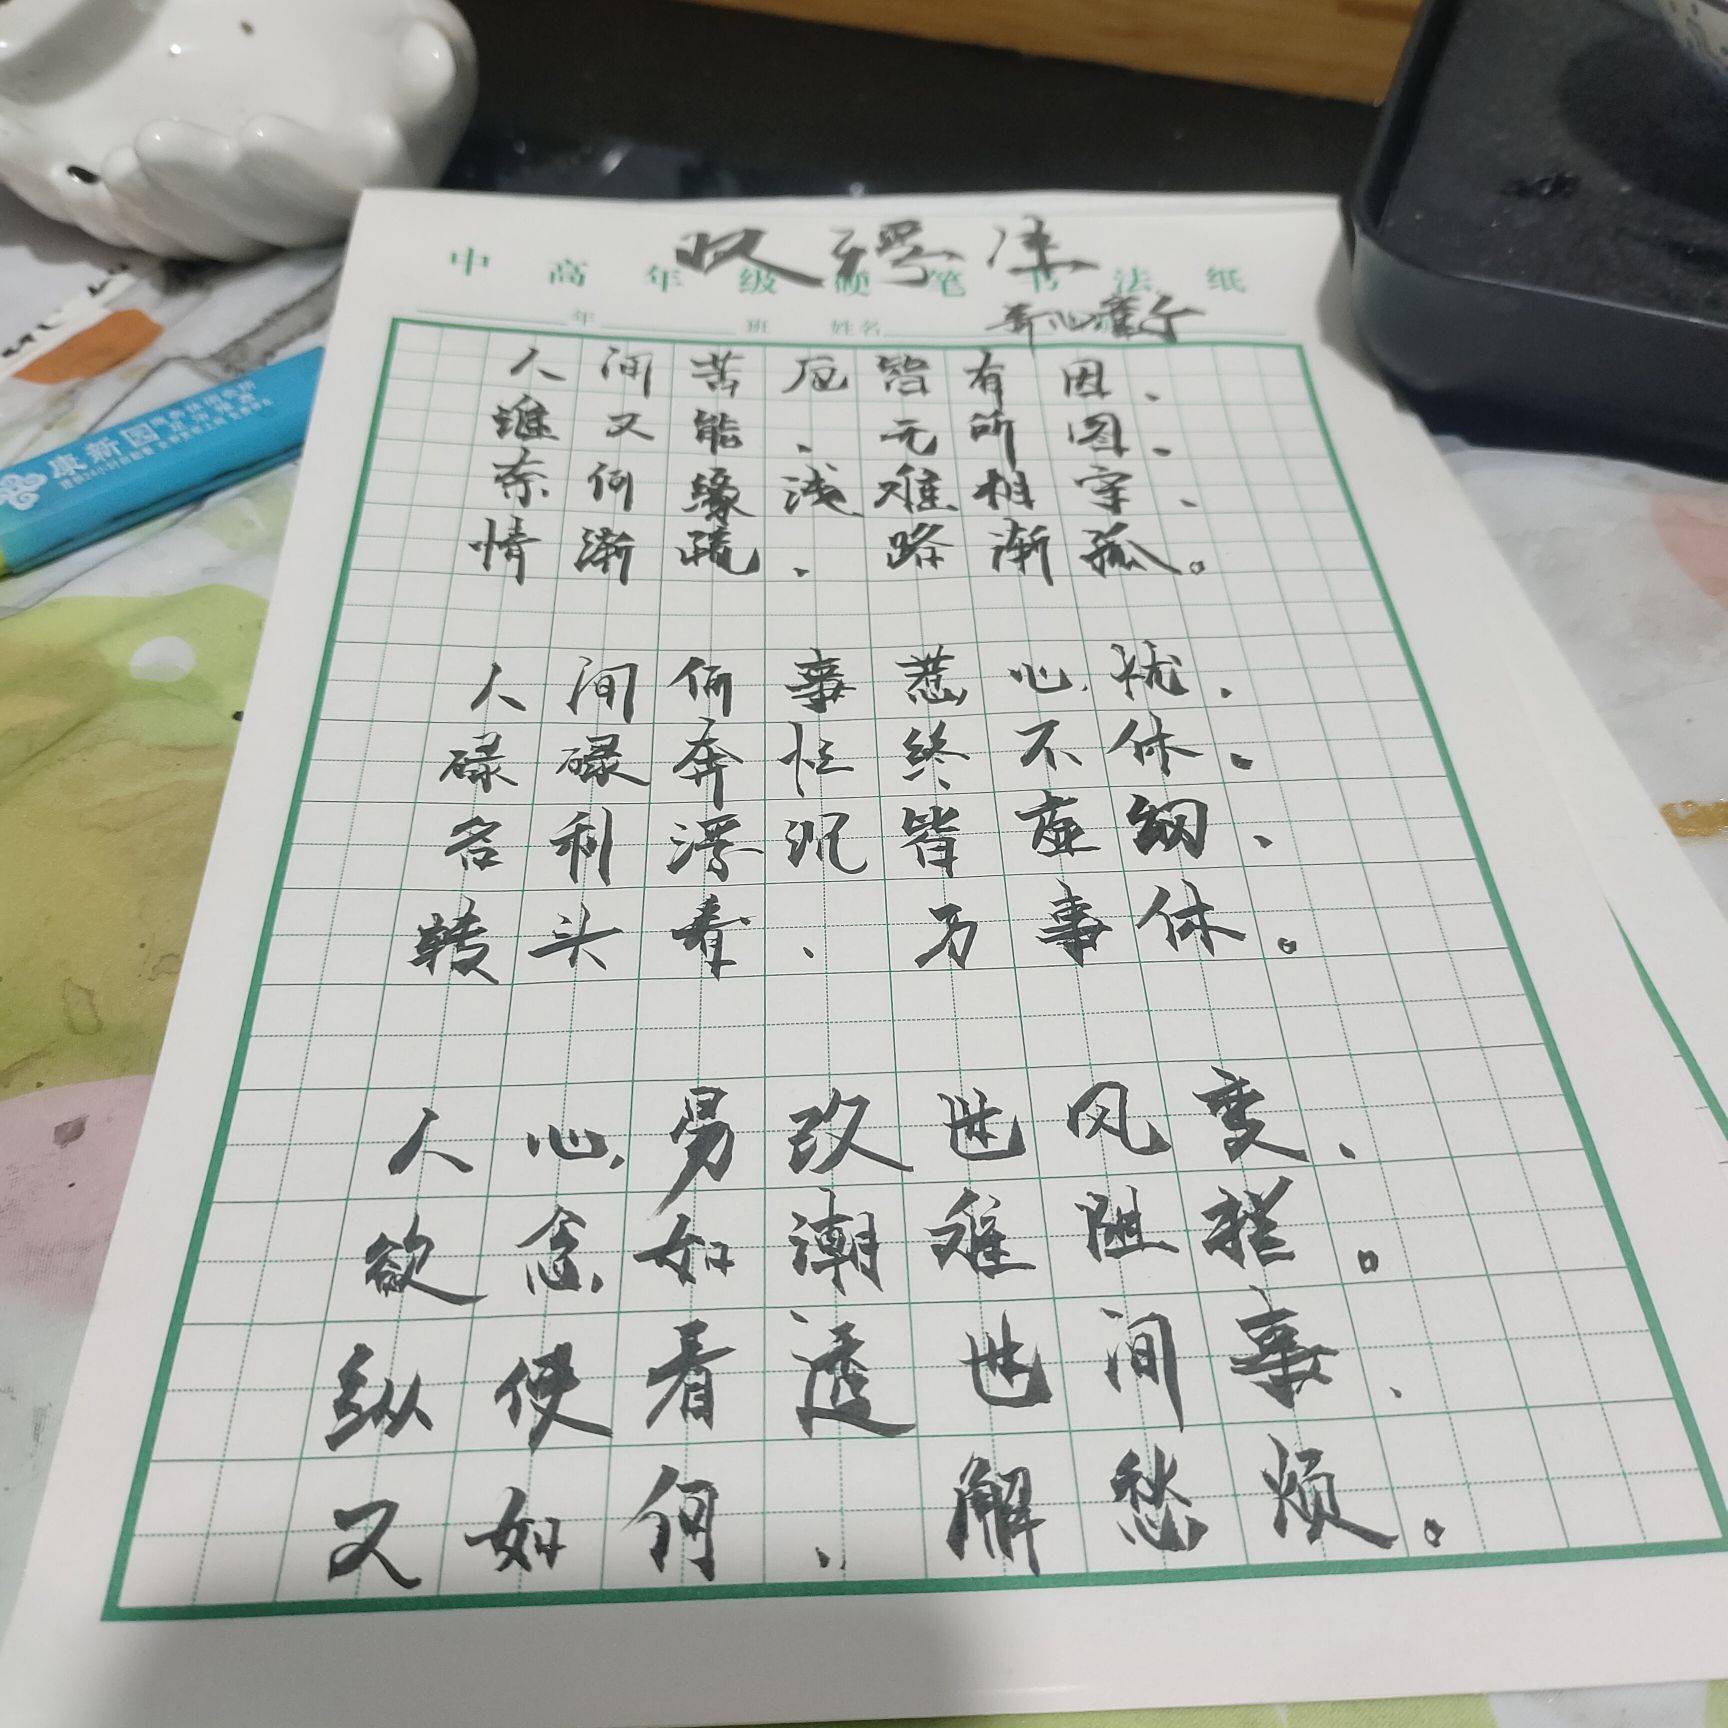 中高年级硬笔书法纸
年 班 姓名
人间苦厄皆有因、
谁又能、无所图。
奈何缘浅难相守、
情渐疏、路渐孤。
人间何事惹心忧、
碌碌奔忙终不休。
名利浮沉皆虚网、
转头看、万事休。
人心易改世风变、
欲念如潮难阻拦。
纵使看透世间事、
又如何、解愁烦。
康新园